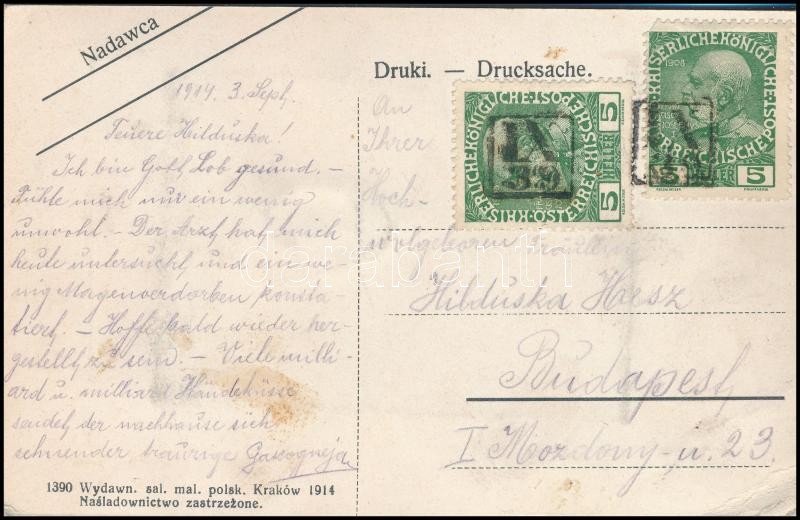 Nadawca
Druki. — Drucksache.
1914. 3. Sept.
Teuere Hilduska!
Ich bin Gott Lob gesund. —
Fühle mich nur ein wenig
unwohl. — Der Arzt hat mich
heute untersucht und ein we-
nig Magenverdorben konsta-
tiert. — Hoffe bald wieder her-
gestellt z. sein. — Viele milli-
ard u. milliard Händeküsse
sendet der nachhause sich
sehnender, traurige Gascogneja
1390 Wydawn. sal. mal. polsk. Kraków 1914
Naśladownictwo zastrzeżone.
An
Ihrer
Hoch-
wolgeboren Fräulein
Hilduska Hoesz
Budapest,
I Mozdony-u. 23.
KAISERLICHE KÖNIGLICHE ÖSTERREICHISCHE POST
5 HELLER 5
1908
KAISERLICHE KÖNIGLICHE ÖSTERREICHISCHE POST
5
darabanth